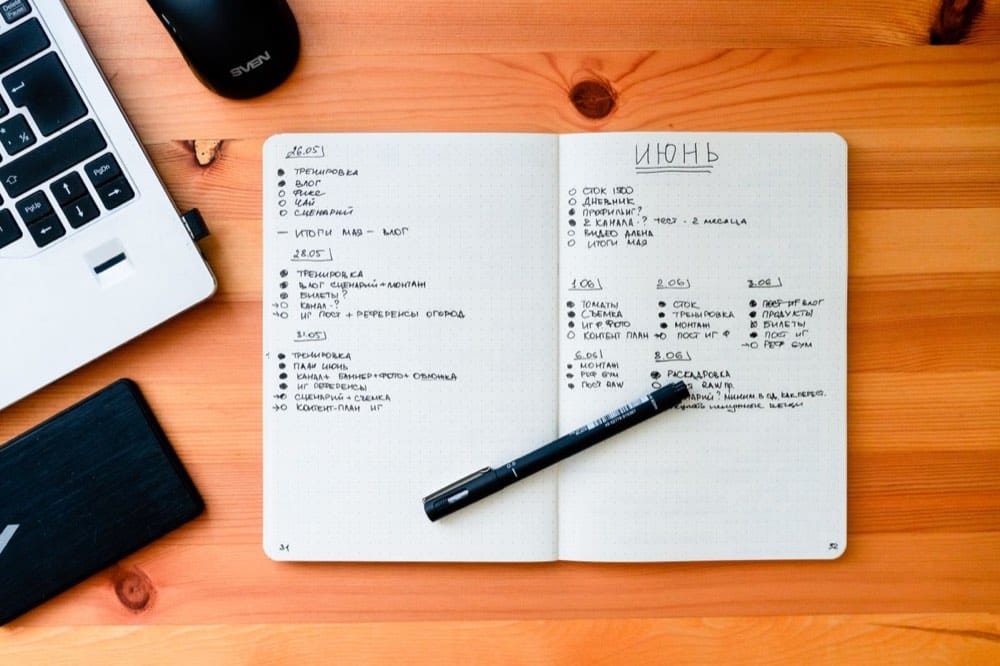 Delete
Pause
SVEN
PgDn
PgUp
26.05
● ТРЕНИРОВКА
● ВЛОГ
○ ФИКС
○ ЧАЙ
○ СЦЕНАРИЙ
— ИТОГИ МАЯ — ВЛОГ
28.05
● ТРЕНИРОВКА
● ВЛОГ СЦЕНАРИЙ + МОНТАЖ
● БИЛЕТЫ?
→○ КАНАЛ - ?
→○ ИГ ПОСТ + РЕФЕРЕНСЫ ОГОРОД
31.05
● ТРЕНИРОВКА
● ПЛАН ИЮНЬ
● КАНАЛ + БАННЕР + ФОТО + ОБЛОЖКА
● ИГ РЕФЕРЕНСЫ
→○ СЦЕНАРИЙ + СЪЕМКА
→○ КОНТЕНТ-ПЛАН ИГ
31
ИЮНЬ
○ СТОК 1500
○ ДНЕВНИК
● ПРОФИЛИНГ?
● 2 КАНАЛА - ? ТЕСТ - 2 МЕСЯЦА
○ ВИДЕО АЛЕНА
○ ИТОГИ МАЯ
1.06
● ТОМАТЫ
● СЪЕМКА
● ИГ Ф ФОТО
○ КОНТЕНТ ПЛАН
2.06
● СТОК
● ТРЕНИРОВКА
● МОНТАЖ
→○ ПОСТ ИГ Ф
3.06
● ПОСТ ИГ ВЛОГ
● ПРОДУКТЫ
БИЛЕТЫ
● ПОСТ ИГ
→○ РЕФ БУМ
6.06
● МОНТАЖ
● РЕФ БУМ
● ПОСТ RAW
8.06
● РАСКАДРОВКА
RAW пр.
МИНИМ. В ОД. КАК ПЕРЕСТ.
вещи
32